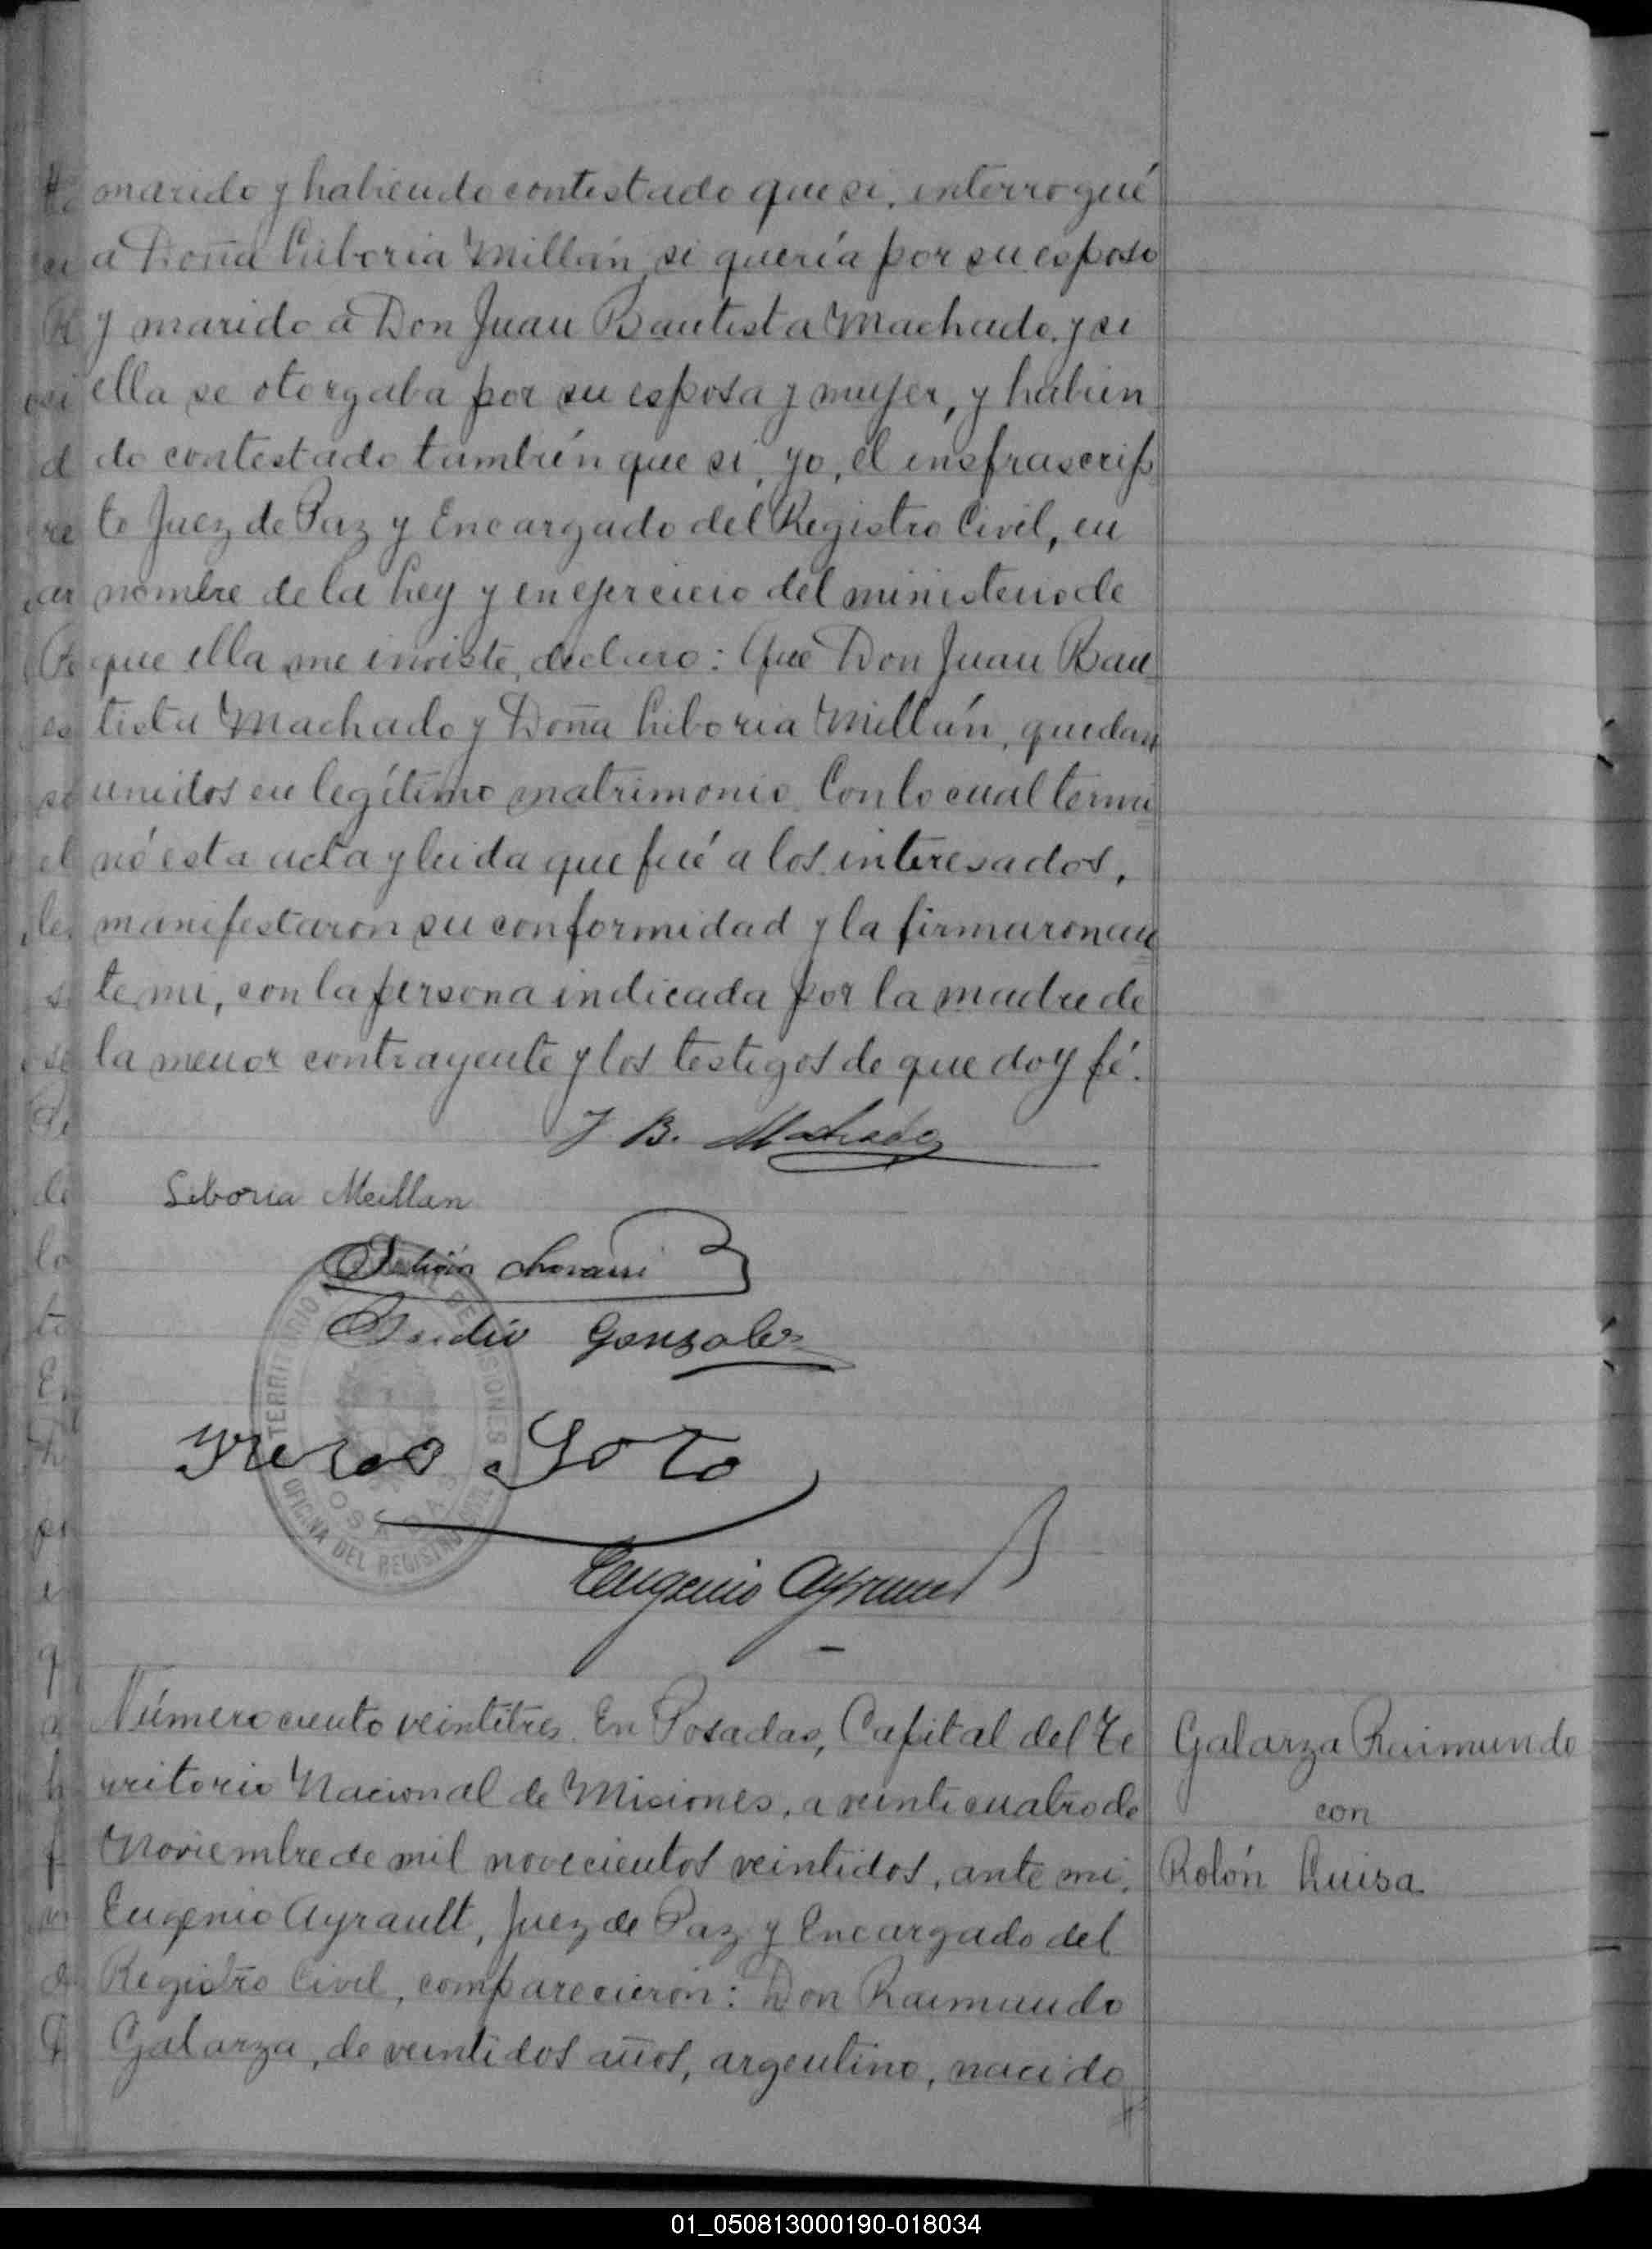 marido y habiendo contestado que si, interrogué
a Doña Liboria Millán, si quería por su esposo
y marido a Don Juan Bautista Machado, y si
ella se otorgaba por su esposa y mujer, y habien
do contestado también que si, yo, el insfrascrip
to Juez de Paz y Encargado del Registro Civil, en
nombre de la Ley y en ejercicio del ministerio de
que ella me inviste, declaro: Que Don Juan Bau
tista Machado y Doña Liboria Millán, quedan
unidos en legítimo matrimonio. Con lo cual termi
nó esta acta y leida que fué a los interesados,
manifestaron su conformidad y la firmaron an
te mi, con la persona indicada por la madre de
la menor contrayente y los testigos de que doy fé.
J B. Machado
Liboria Meillan
Gonzalez
Soto
TERRITORIO NACIONAL DE MISIONES
POSADAS
OFICINA DEL REGISTRO CIVIL
Eugenio Ayrault
Número ciento veintitres. En Posadas, Capital del Te
rritorio Nacional de Misiones, a veinticuatro de
Noviembre de mil novecientos veintidos, ante mi,
Eugenio Ayrault, Juez de Paz y Encargado del
Registro Civil, comparecieron: Don Raimundo
Galarza, de veintidos años, argentino, nacido
Galarza Raimundo
con
Rolón Luisa
01_050813000190-018034